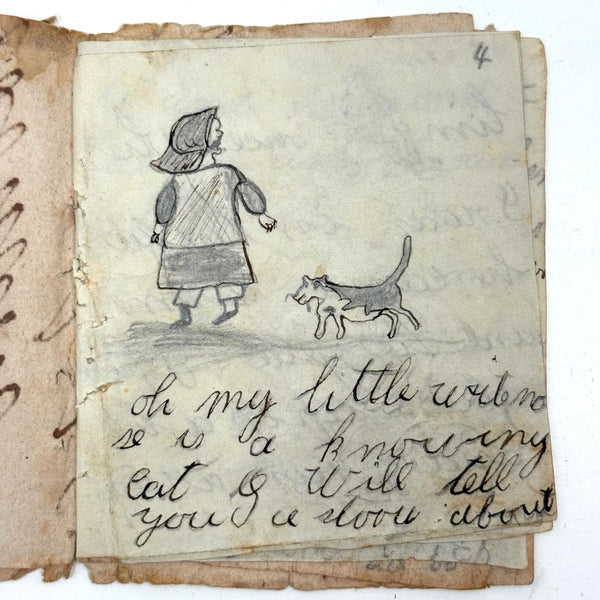 4
oh my little witeno
se is a knowing
cat I will tell
you a about